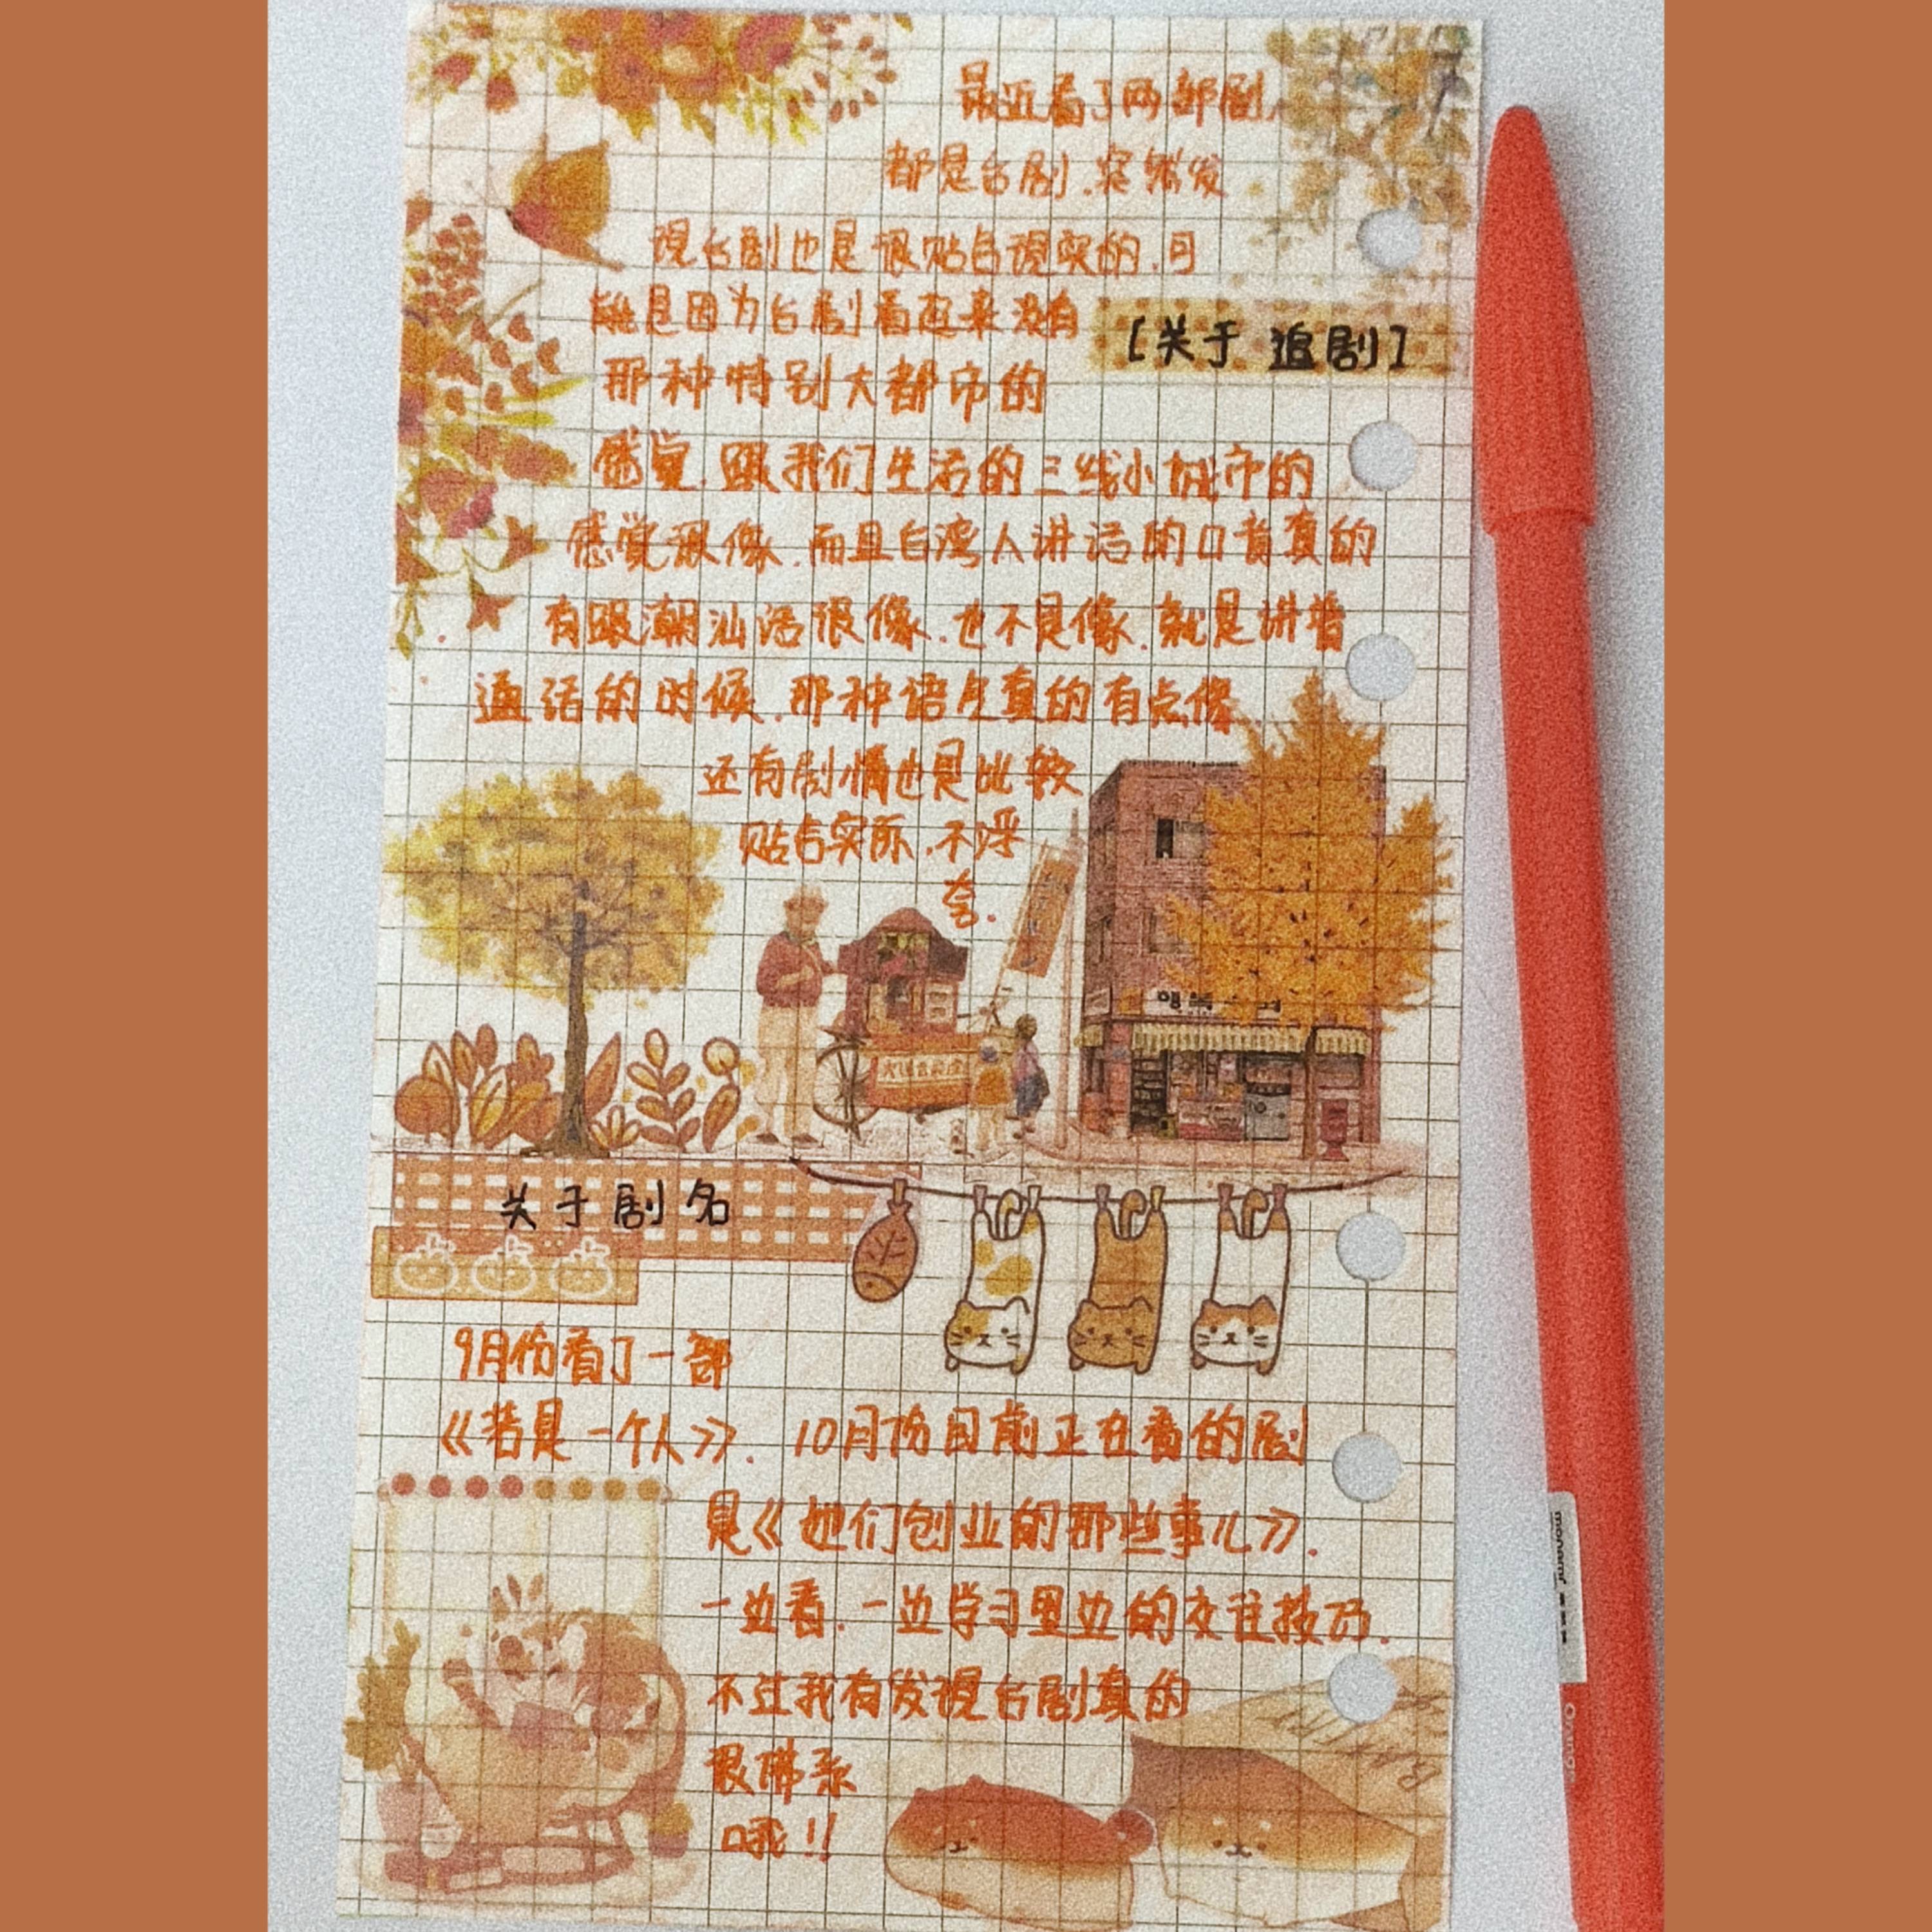 最近看了两部剧，
都是台剧.突然发
现台剧也是很贴合现实的.可
能是因为台剧看起来没有
【关于 追剧】
那种特别大都市的
感觉.跟我们生活的三线小城市的
感觉很像.而且台湾人讲话的口音真的
有跟潮汕话很像.也不是像.就是讲普
通话的时候.那种语气真的有点像
还有剧情也是比较
贴合实际.不浮
夸.
关于剧名
9月份看了一部
《若是一个人》.10月份目前正在看的剧
是《她们创业的那些事儿》.
一边看.一边学习里边的交往技巧.
不过我有发现台剧真的
很佛系
哦!!
monami